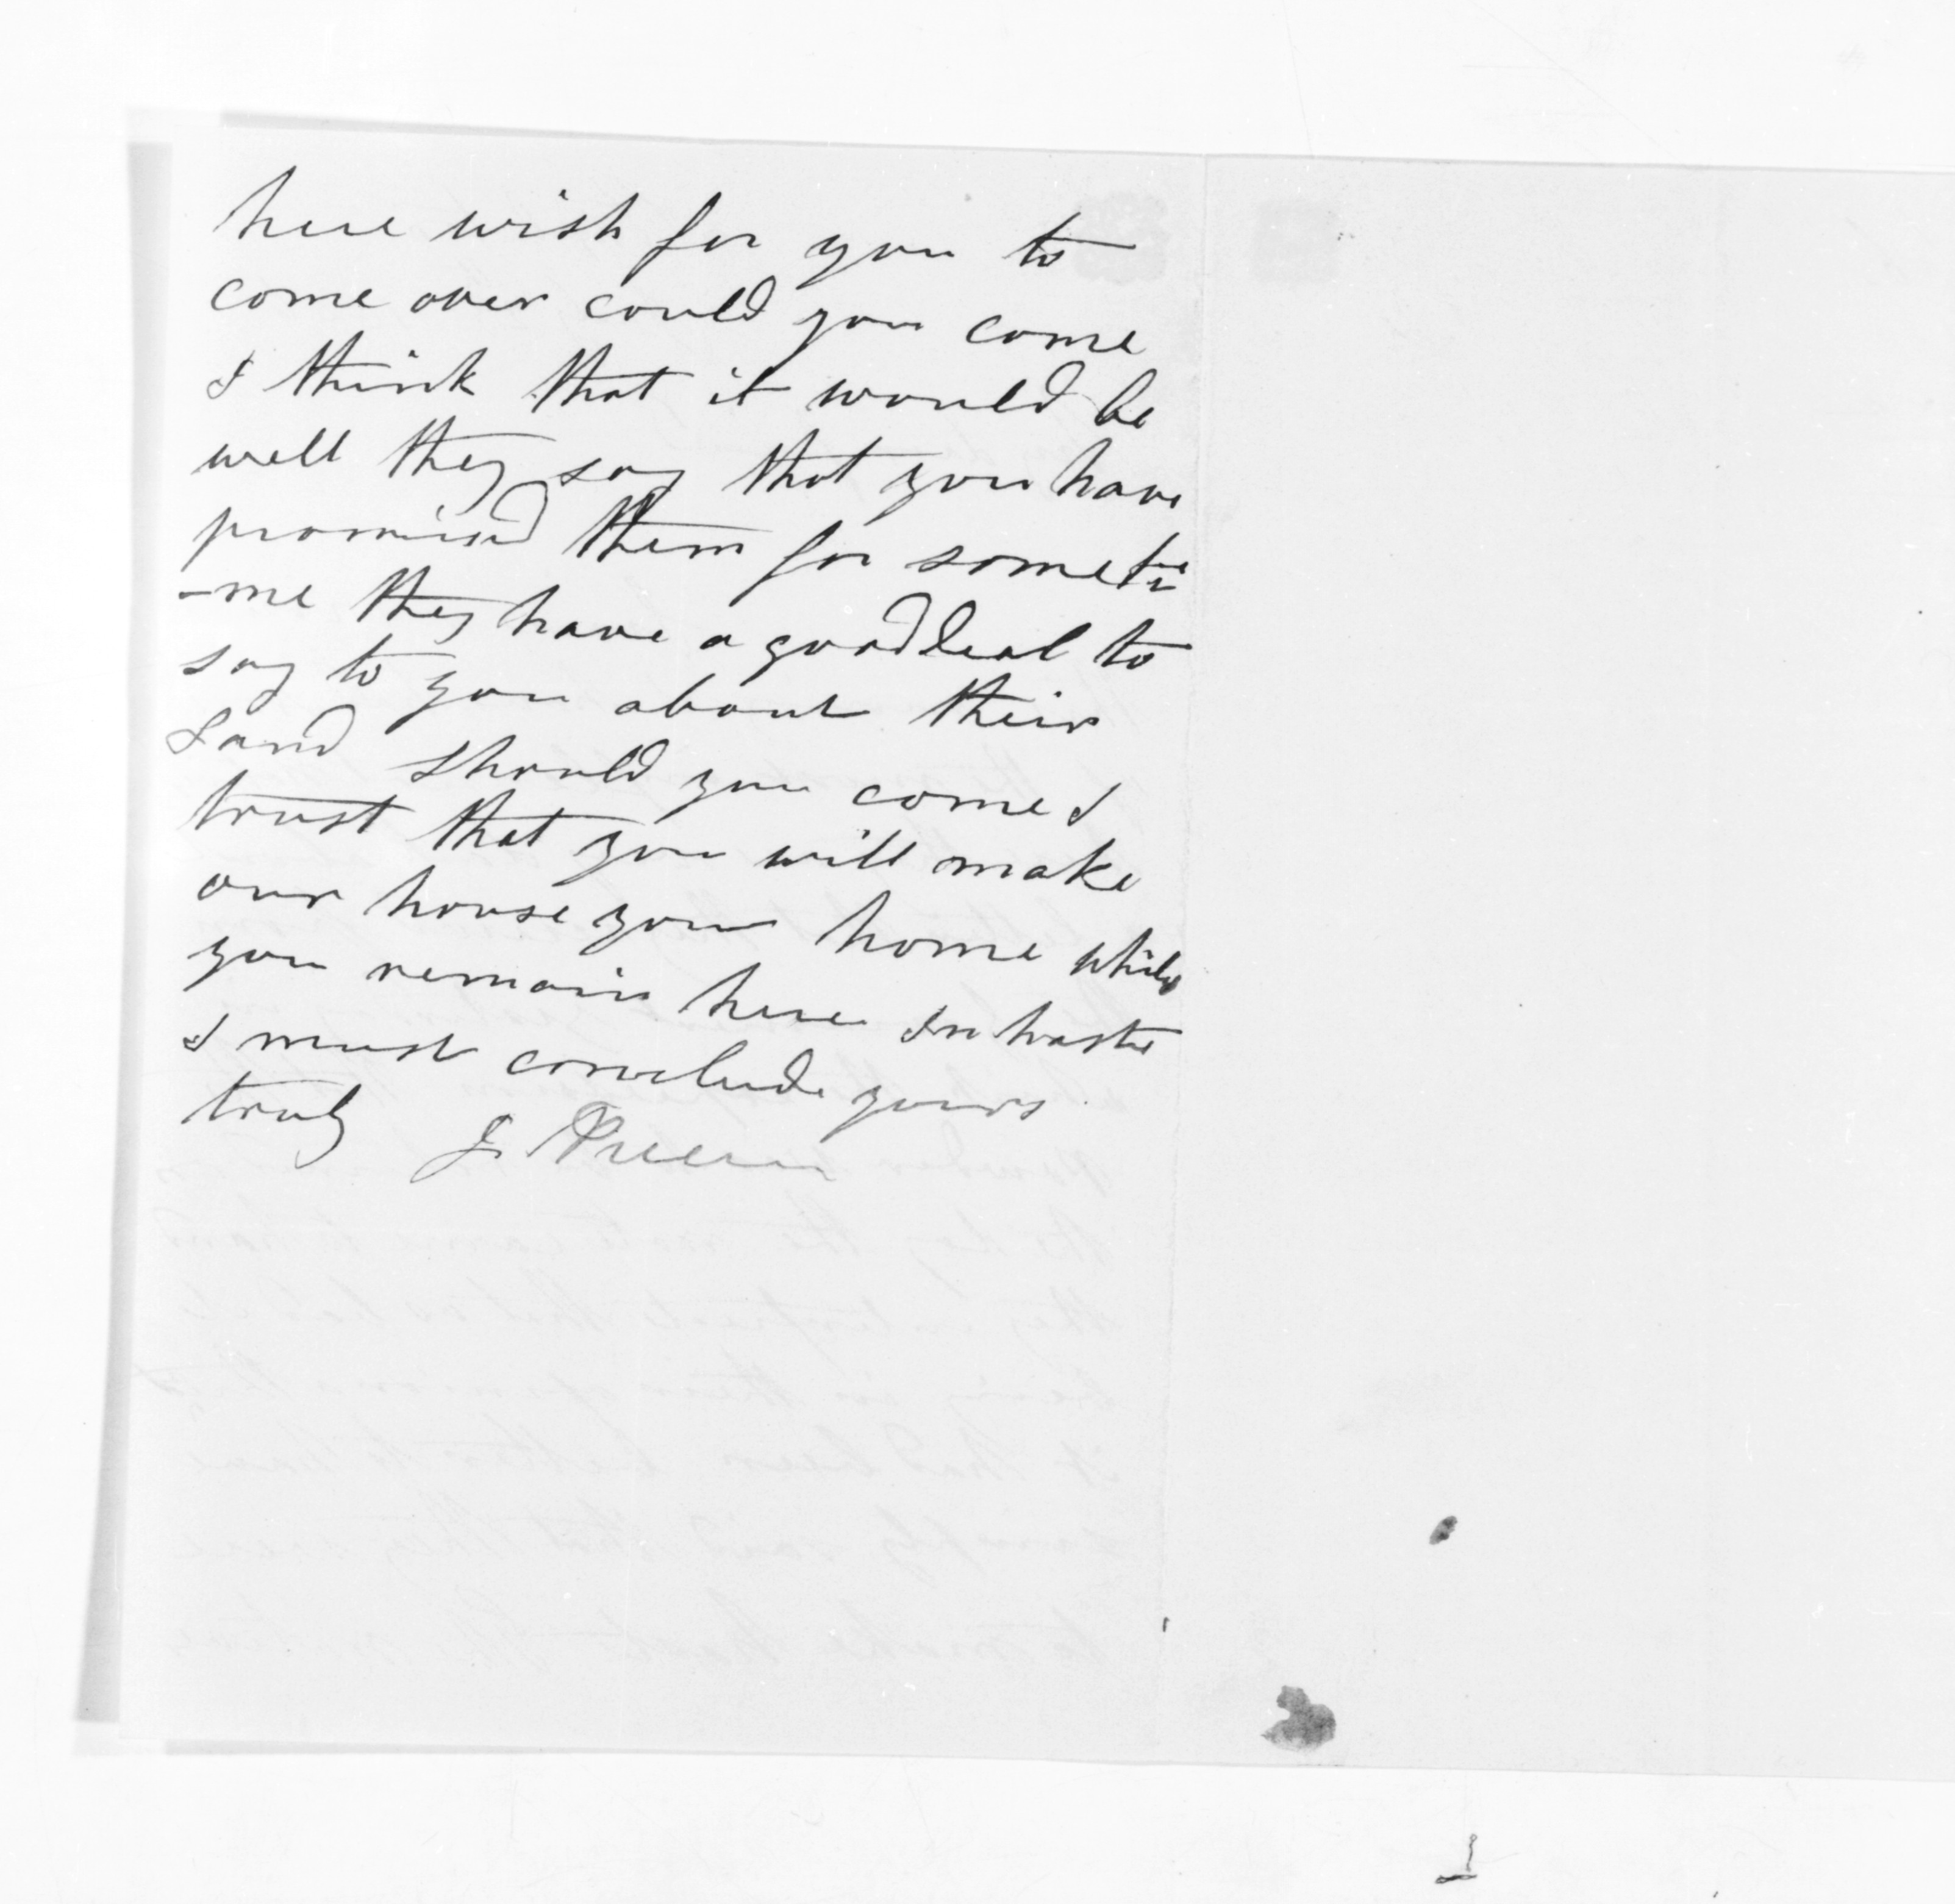 here wish for you to
come over could you come
I think that it would be
well they say that you have
promised them for someti
-me they have a good deal to
say to you about their
Land should you come I
trust that you will make
our house your home while
you remain here In haste
I must conclude yours
truly J.